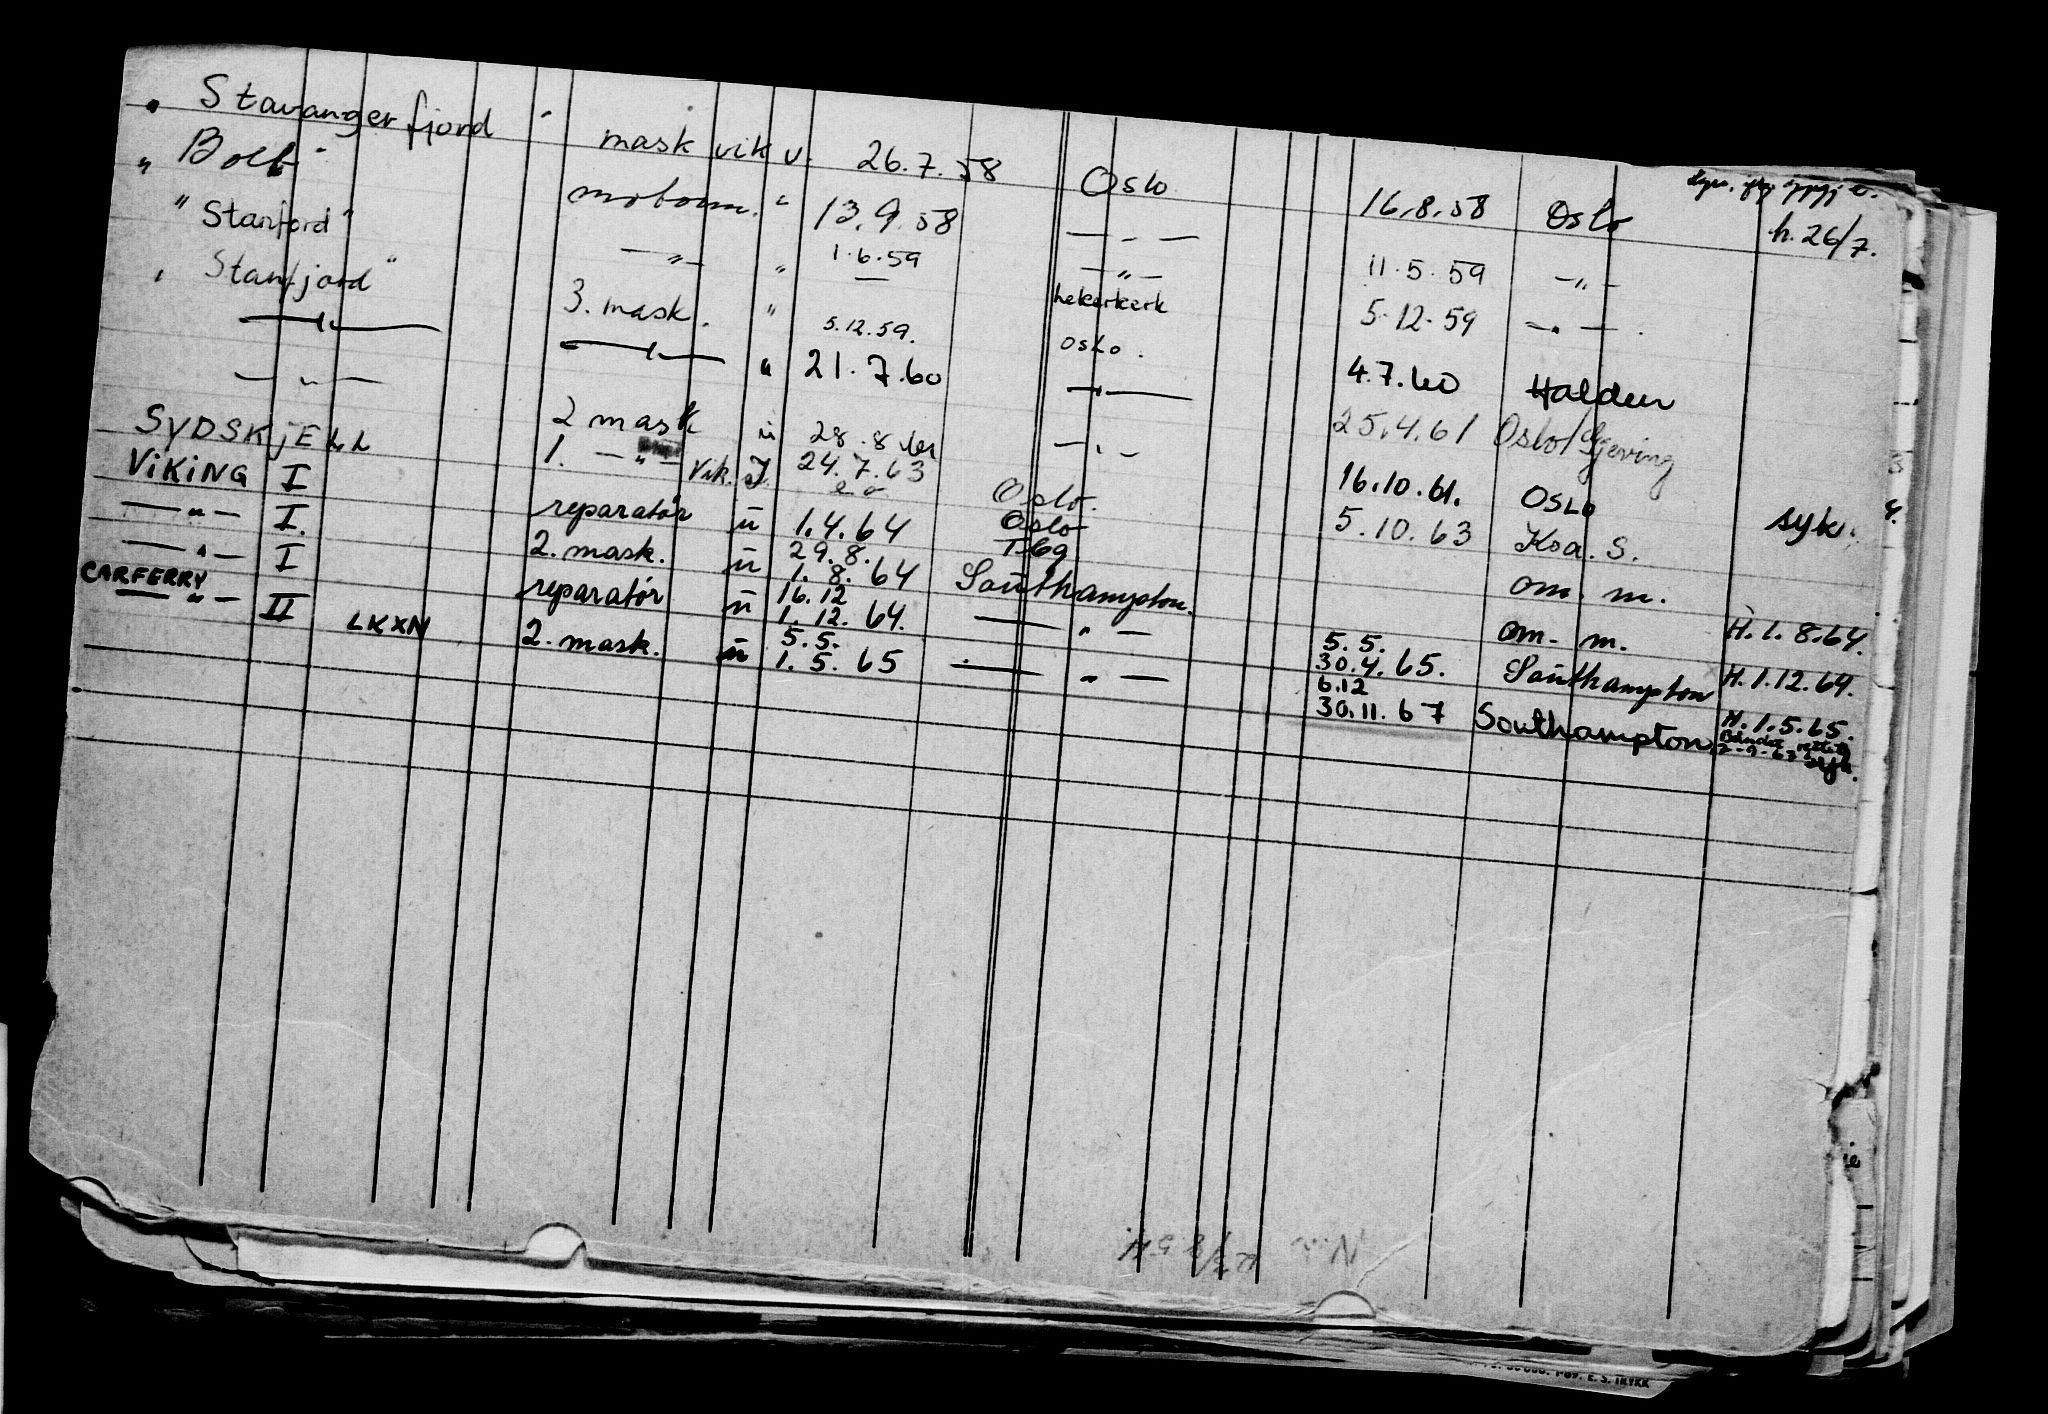 " Stavangerfjord " mask vik u. 26.7.58 Oslo 16.8.58 Oslo h. 26/7.
" Bolt " motorm. " 13.9.58 — " — 11.5.59 — " —
" Stanford " — " — " 1.6.59 — " — 5.12.59 — " —
" Stanfjord " 3. mask. " 5.12.59. Lekerkerk 4.7.60 Halden
— " — — " — " 21.7.60 Oslo. 25.4.61 Oslo/Gjeving
— " — 2 mask u 28.8.61 — " — 16.10.61. OSLO syk.
SYDSKJELL 1. — " — vik. 24.7.63 — " — 5.10.63 Koa. S.
VIKING I reparatør u 1.4.64 Oslo. om. m.
— " — I. 2. mask. u 29.8. 1.8.64 Oslo Tbg om. m. H. 1.8.64.
— " — I reparatør u 16.12 1.12.64. Southampton. 5.5. 30.4.65. Southampton H. 1.12.64.
CARFERRY — " — II LKXN 2. mask. u 5.5. 1.5.65 — " — 6.12 30.11.67 Southampton H. 1.5.65.
— " —
syk.